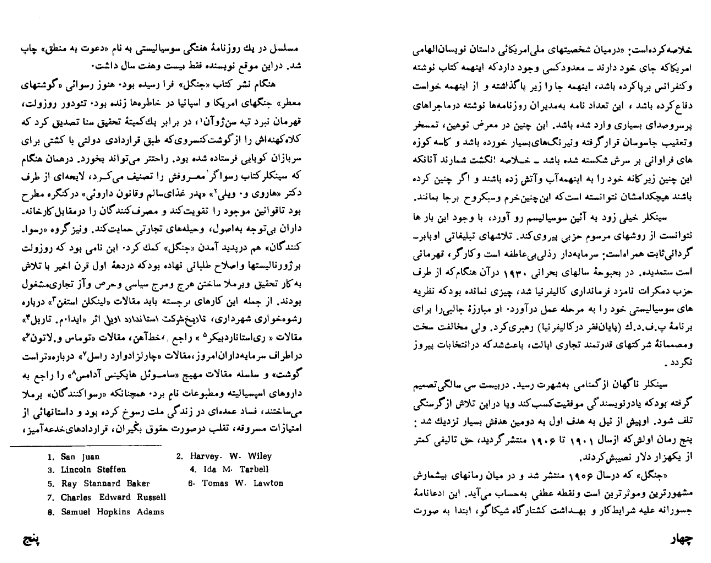 خلاصه کرده است: «درمیان شخصیتهای ملی امریکائی داستان نویسان الهامی
امریکا که جای خود دارند ــ معدود کسی وجود دارد که اینهمه کتاب نوشته
و کنفرانس برپا کرده باشد، اینهمه جا را زیر پا گذاشته و از اینهمه خواست
دفاع کرده باشد ، این تعداد نامه به مدیران روزنامه‌ها نوشته در ماجراهای
پرسروصدای بسیاری وارد شده باشد. این چنین در معرض توهین، تمسخر
و تعقیب جاسوسان قرار گرفته و نیرنگ‌های بسیار خورده باشد و کاسه کوزه
های فراوانی بر سرش شکسته شده باشد ــ خلاصه انگشت شمارند آنانکه
این چنین زیرکانه خود را به اینهمه آب و آتش زده باشند و اگر چنین کرده
باشند هیچکدامشان نتوانسته است که این چنین خرم و سبکروح برجا بمانند.
سینکلر خیلی زود به آئین سوسیالیسم رو آورد، با وجود این بار ها
نتوانست از روشهای مرسوم حزبی پیروی کند. تلاشهای تبلیغاتی او با بر‌ـ
گردانی ثابت همراه است: سرمایه‌دار رذلی بی‌عاطفه است و کارگر، قهرمانی
است ستمدیده. در بحبوحهٔ سالهای بحرانی ۱۹۳۰ در آن هنگام که از طرف
حزب دمکرات نامزد فرمانداری کالیفرنیا شد، چیزی نمانده بود که نظریه
های سوسیالیستی خود را به مرحله عمل درآورد. او مبارزهٔ جالبی را برای
برنامهٔ پ.ف.د.ك (پایان فقر در کالیفرنیا) رهبری کرد. ولی مخالفت سخت
و مصممانهٔ شرکتهای قدرتمند تجاری ایالت، باعث شد که در انتخابات پیروز
نگردد .
سینکلر ناگهان از گمنامی به شهرت رسید. در بیست سی سالگی تصمیم
گرفته بود که یا در نویسندگی موفقیت کسب کند و یا در این تلاش از گرسنگی
تلف شود. او پیش از نیل به هدف اول به دومین هدفش بسیار نزدیك شد :
پنج رمان اولش که از سال ۱۹۰۱ تا ۱۹۰۶ منتشر گردید، حق تالیفی کمتر
از یکهزار دلار نصیبش کردند.
«جنگل» که در سال ۱۹۰۶ منتشر شد و در میان رمانهای بیشمارش
مشهورترین و موثرترین است و نقطه عطفی به حساب می‌آید. این ادعانامهٔ
جسورانه علیه شرایط کار و بهداشت کشتارگاه شیکاگو، ابتدا به صورت
چهار
مسلسل در یك روزنامهٔ هفتگی سوسیالیستی به نام «دعوت به منطق» چاپ
شد. در این موقع نویسنده فقط بیست و هفت سال داشت.
هنگام نشر کتاب «جنگل» فرا رسیده بود. هنوز رسوائی «گوشتهای
معطر» جنگهای امریکا و اسپانیا در خاطره‌ها زنده بود. تئودور روزولت،
قهرمان نبرد تپه سن‌ژوآن۱، در برابر یك کمیتهٔ تحقیق سنا تصدیق کرد که
کلاه کهنه‌اش را از گوشت کنسروی که طبق قراردادی دولتی با کشتی برای
سربازان کوبایی فرستاده شده بود. راحتتر می‌تواند بخورد. در همان هنگام
که سینکلر کتاب رسواگر معروفش را تصنیف می‌کرد، لایحه‌ای از طرف
دکتر «هاروی و. ویلی۲» «پدر غذای سالم و قانون داروئی» در کنگره مطرح
بود تا قوانین موجود را تقویت کند و مصرف کنندگان را در مقابل کارخانه‌ـ
داران بی‌توجه به اصول، و حیله‌های تجارتی حمایت کند. و نیز گروه «رسوا‌ـ
کنندگان» هم در پدید آمدن «جنگل» کمك کرد. این نامی بود که روزولت
بر ژورنالیستها و اصلاح طلبانی نهاده بود که در دههٔ اول قرن اخیر با تلاش
به کار تحقیق و برملا ساختن هرج و مرج سیاسی و حرص و آز تجاری مشغول
بودند. از جمله این کارهای برجسته باید مقالات «لینکلن استفن۳» درباره
رشوه‌خواری شهرداری، تاریخ شرکت استاندارد اویل اثر «ایدا م. تاربل۴»
مقالات « ری استانارد بیکر۵ » راجع به خط آهن، مقالات «توماس و.لاتون۶»
در اطراف سرمایه‌داران امروز، مقالات «چارلز ادوارد راسل۷» درباره «تراست
گوشت» و سلسله مقالات مهیج «ساموئل هاپکینس آدامس۸» را راجع به
داروهای اسپسیالیته و مطبوعات نام برد. همچنانکه «رسوا کنندگان» برملا
می‌ساختند، فساد عمده‌ای در زندگی ملت رسوخ کرده بود و داستانهایی از
امتیازات مسروقه، تقلب در صورت حقوق بگیران، قراردادهای خدعه‌آمیز،
1. San Juan 2. Harvey. W. Wiley
3. Lincoln Steffen 4. Ida M. Tarbell
5. Ray Stannard Baker 6. Tomas W. Lawton
7. Charles Edward Russell
8. Samuel Hopkins Adams
پنج